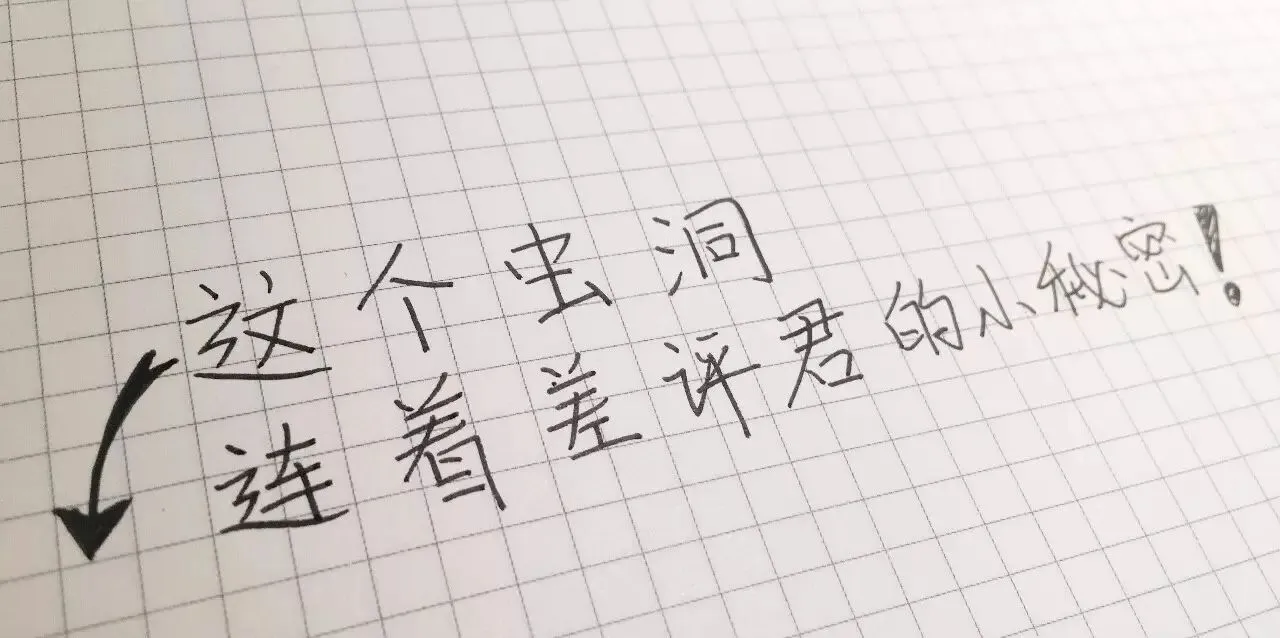 这个虫洞
连着差评君的小秘密!